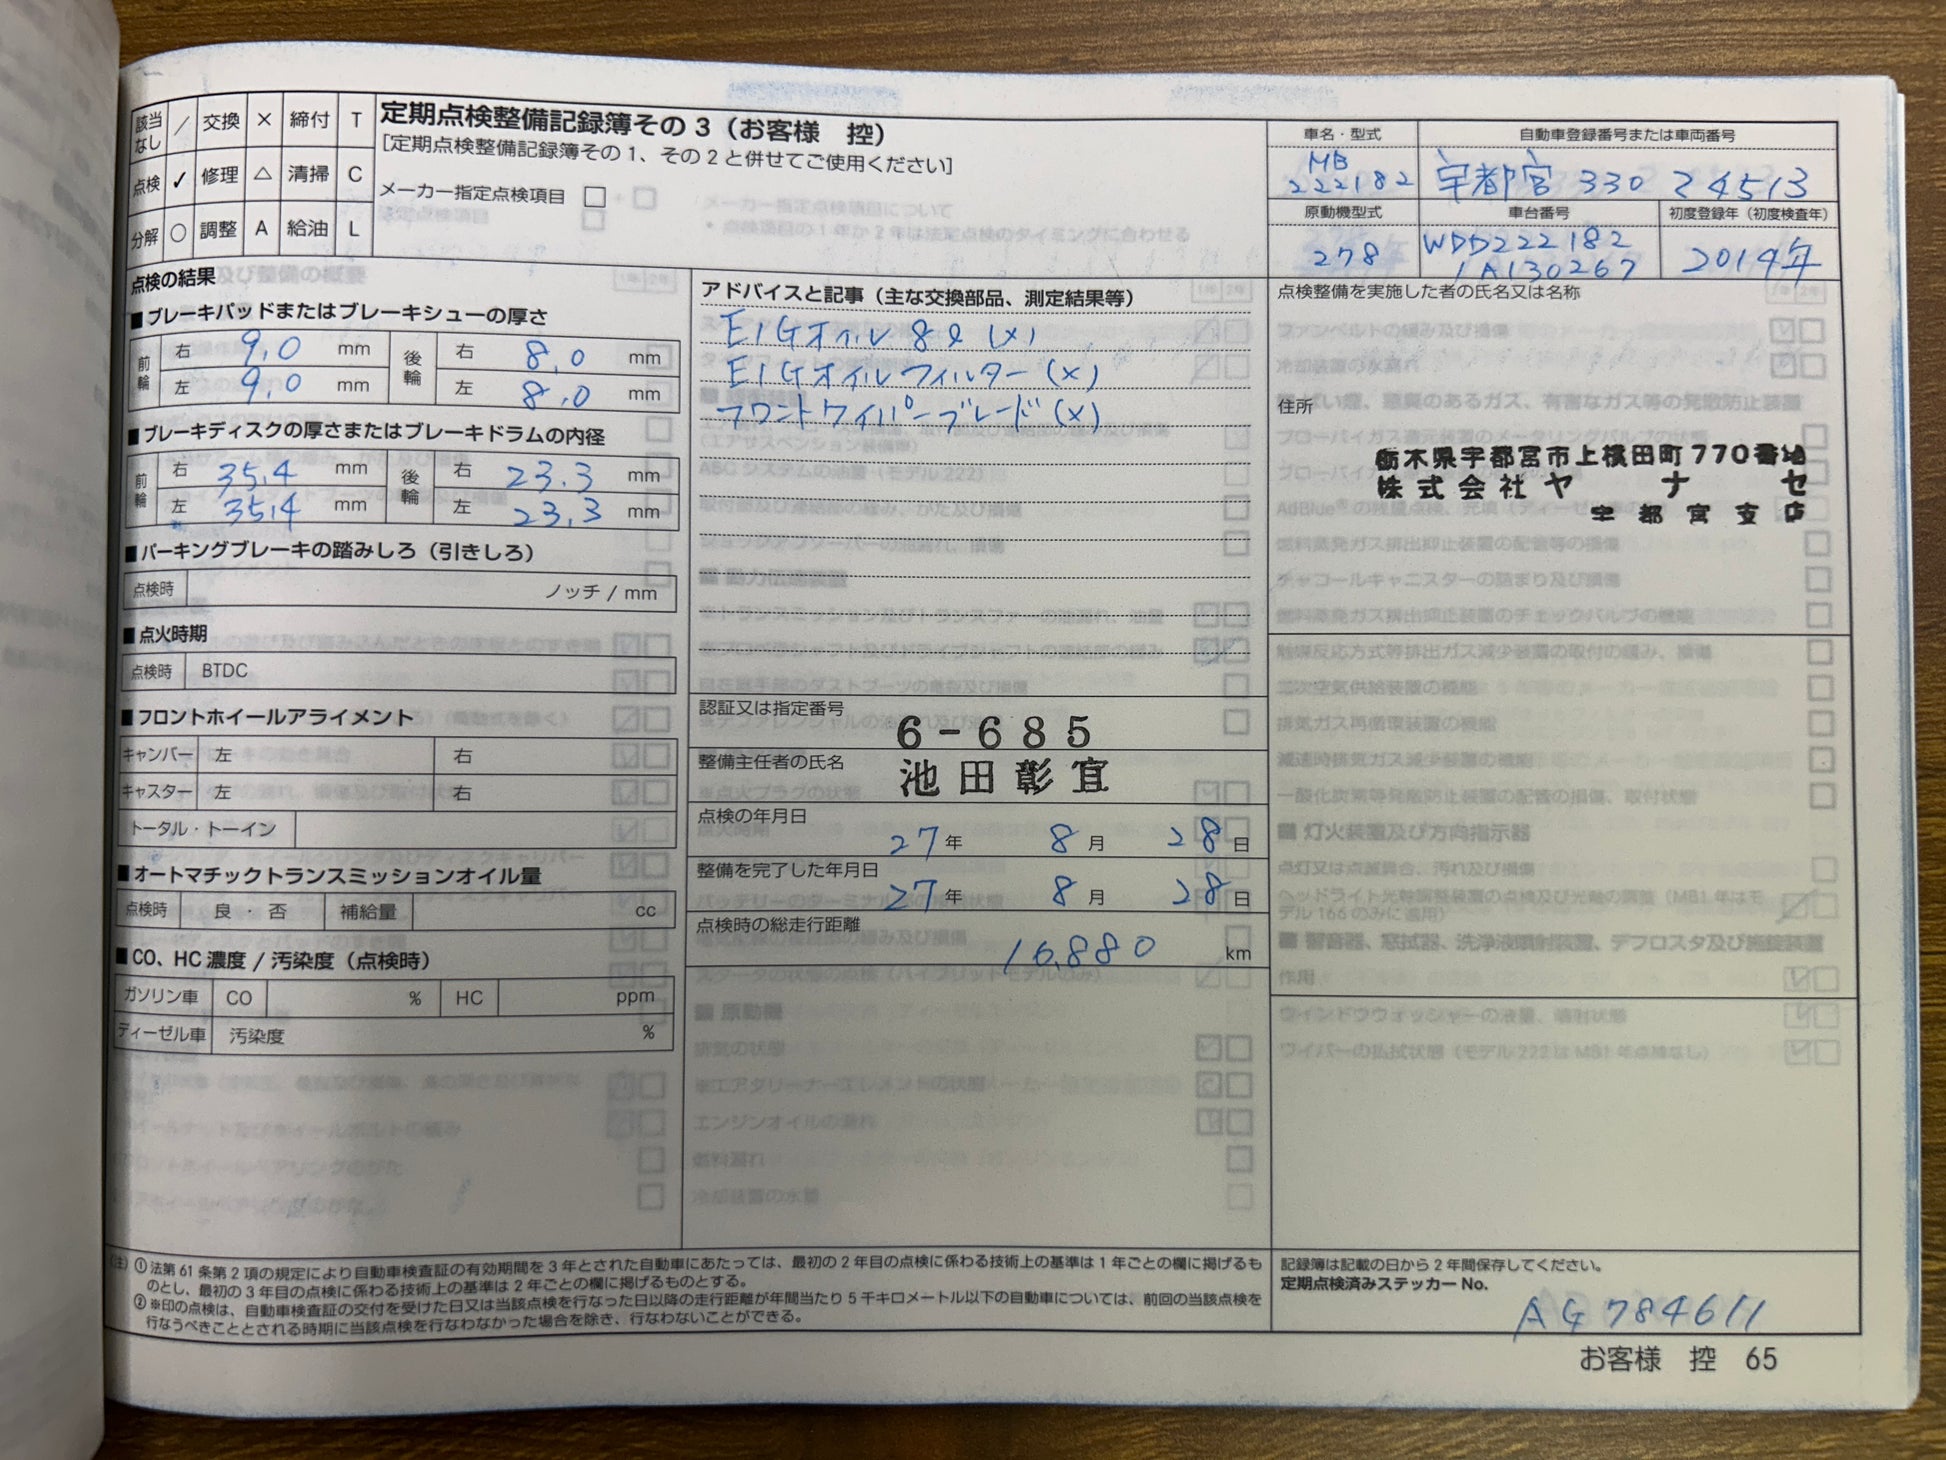 該当なし ／ 交換 × 締付 T
点検 ✓ 修理 △ 清掃 C
分解 ○ 調整 A 給油 L
定期点検整備記録簿その3（お客様 控）
[定期点検整備記録簿その1、その2と併せてご使用ください]
メーカー指定点検項目 □
車名・型式
MB
222182
自動車登録番号または車両番号
宇都宮 330 そ 4513
原動機型式
278
車台番号
WDD222182
1A130267
初度登録年（初度検査年）
2014年
点検の結果
■ブレーキパッドまたはブレーキシューの厚さ
前輪 右 9.0 mm 後輪 右 8.0 mm
左 9.0 mm 左 8.0 mm
■ブレーキディスクの厚さまたはブレーキドラムの内径
前輪 右 35.4 mm 後輪 右 23.3 mm
左 35.4 mm 左 23.3 mm
■パーキングブレーキの踏みしろ（引きしろ）
点検時 ノッチ / mm
■点火時期
点検時 BTDC
■フロントホイールアライメント
キャンバー 左 右
キャスター 左 右
トータル・トーイン
■オートマチックトランスミッションオイル量
点検時 良・否 補給量 cc
■CO、HC濃度 / 汚染度（点検時）
ガソリン車 CO % HC ppm
ディーゼル車 汚染度 %
アドバイスと記事（主な交換部品、測定結果等）
E/Gオイル 8ℓ (×)
E/Gオイルフィルター (×)
フロントワイパーブレード (×)
認証又は指定番号
6-685
整備主任者の氏名
池田彰宜
点検の年月日
27年 8月 28日
整備を完了した年月日
27年 8月 28日
点検時の総走行距離
16,880 km
点検整備を実施した者の氏名又は名称
住所
栃木県宇都宮市上横田町770番地
株式会社ヤナセ
宇都宮支店
（注）①法第61条第2項の規定により自動車検査証の有効期間を3年とされた自動車にあたっては、最初の2年目の点検に係わる技術上の基準は1年ごとの欄に掲げるも
のとし、最初の3年目の点検に係わる技術上の基準は2年ごとの欄に掲げるものとする。
②※印の点検は、自動車検査証の交付を受けた日又は当該点検を行なった日以降の走行距離が年間当たり5千キロメートル以下の自動車については、前回の当該点検を
行なうべきこととされる時期に当該点検を行なわなかった場合を除き、行なわないことができる。
記録簿は記載の日から2年間保存してください。
定期点検済みステッカーNo.
AG784611
お客様 控 65